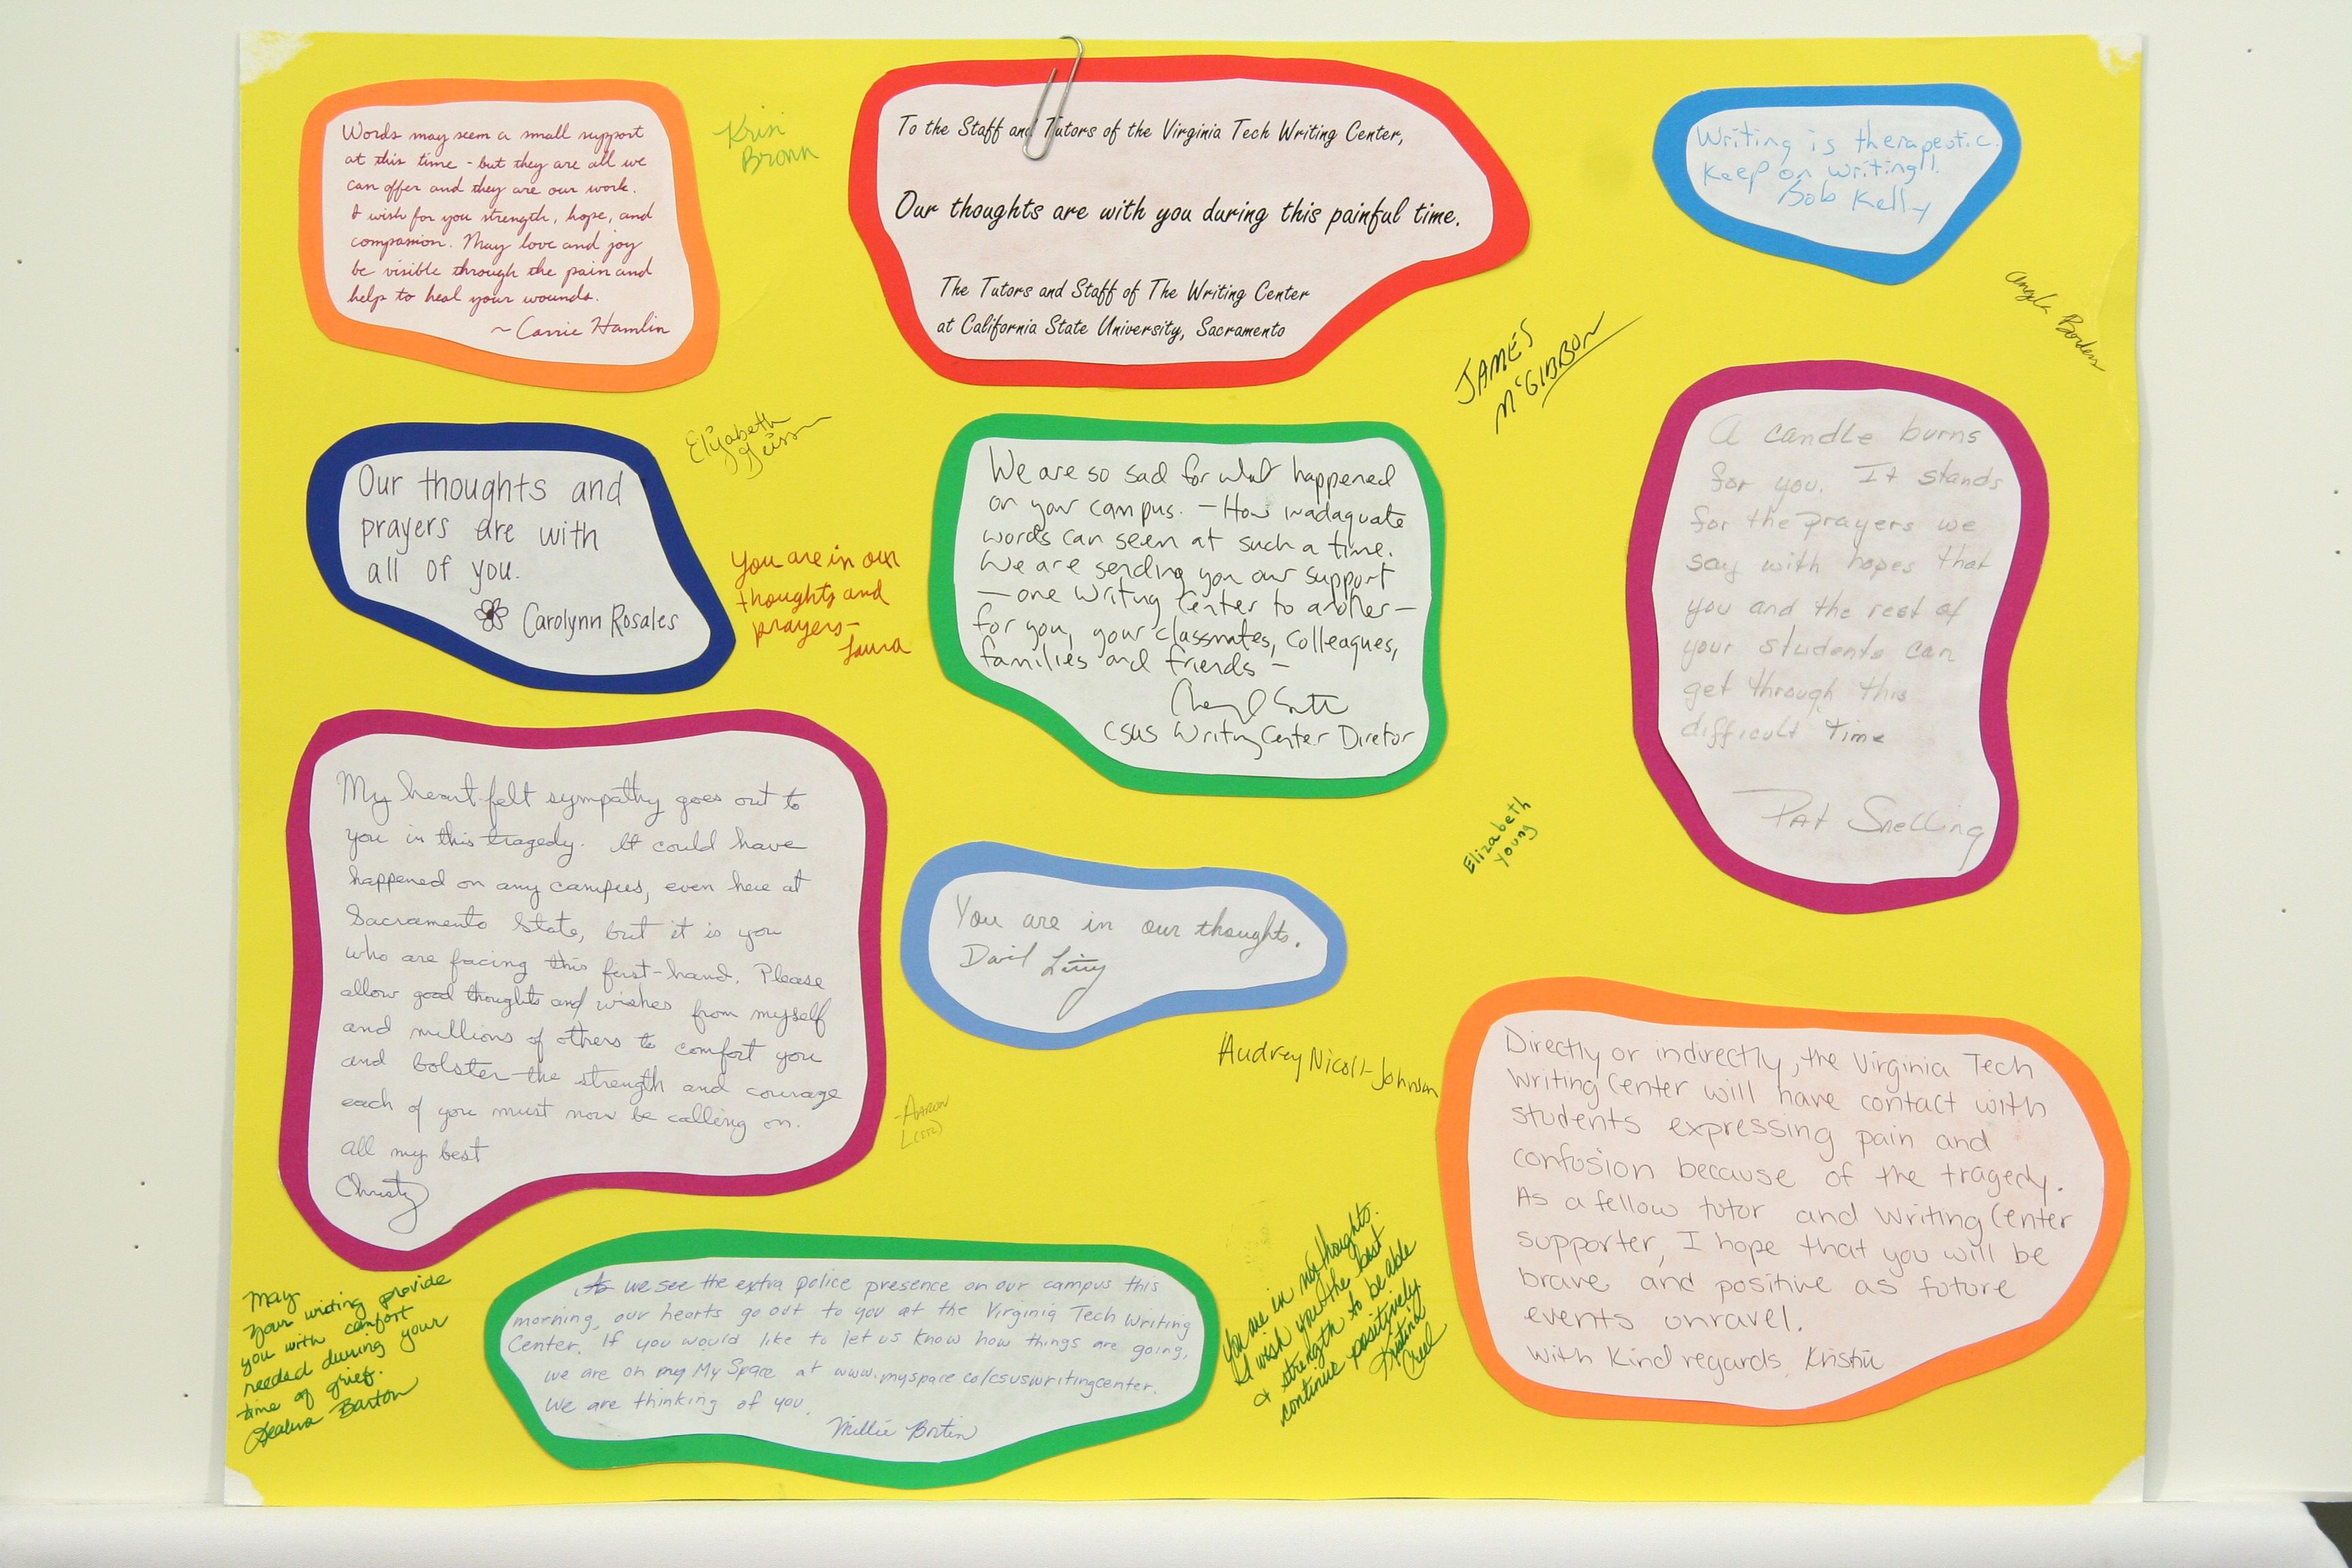 Words may seem a small support
at this time - but they are all we
can offer and they are our work.
I wish for you strength, hope, and
compassion. May love and joy
be visible through the pain and
help to heal your wounds.
~ Carrie Hamlin
Krisi
Bronn
To the Staff and Tutors of the Virginia Tech Writing Center,
Our thoughts are with you during this painful time.
The Tutors and Staff of The Writing Center
at California State University, Sacramento
Writing is therapeutic.
Keep on writing!!
Bob Kelly
Angela Borden
JAMES
McGIBBON
Elizabeth
Our thoughts and
prayers are with
all of you.
Carolynn Rosales
You are in our
thoughts and
prayers-
Laura
We are so sad for what happened
on your campus. - How inadaquate
words can seem at such a time.
We are sending you our support
- one Writing Center to another -
for you, your classmates, colleagues,
families and friends -
CSUS Writing Center Diretor
A candle burns
for you. It stands
for the prayers we
say with hopes that
you and the rest of
your students can
get through this
difficult time
Pat Snelling
My heart-felt sympathy goes out to
you in this tragedy. It could have
happened on any campus, even here at
Sacramento State, but it is you
who are facing this first-hand. Please
allow good thoughts and wishes from myself
and millions of others to comfort you
and bolster the strength and courage
each of you must now be calling on.
All my best
Christy
You are in our thoughts.
David
Elizabeth
Young
Audrey Nicoll-Johnson
-Aaron
Directly or indirectly, the Virginia Tech
Writing Center will have contact with
students expressing pain and
confusion because of the tragedy.
As a fellow tutor and Writing Center
supporter, I hope that you will be
brave and positive as future
events unravel.
With Kind regards, Kristin
May
your writing provide
you with comfort
needed during your
time of grief.
Barton
As we see the extra police presence on our campus this
morning, our hearts go out to you at the Virginia Tech Writing
Center. If you would like to let us know how things are going,
we are on my My Space at www.myspace.co/csuswritingcenter.
We are thinking of you.
Millie Bortin
You are in my thoughts.
I wish you the best
& strength to be able
continue positively
Kristina
Creel